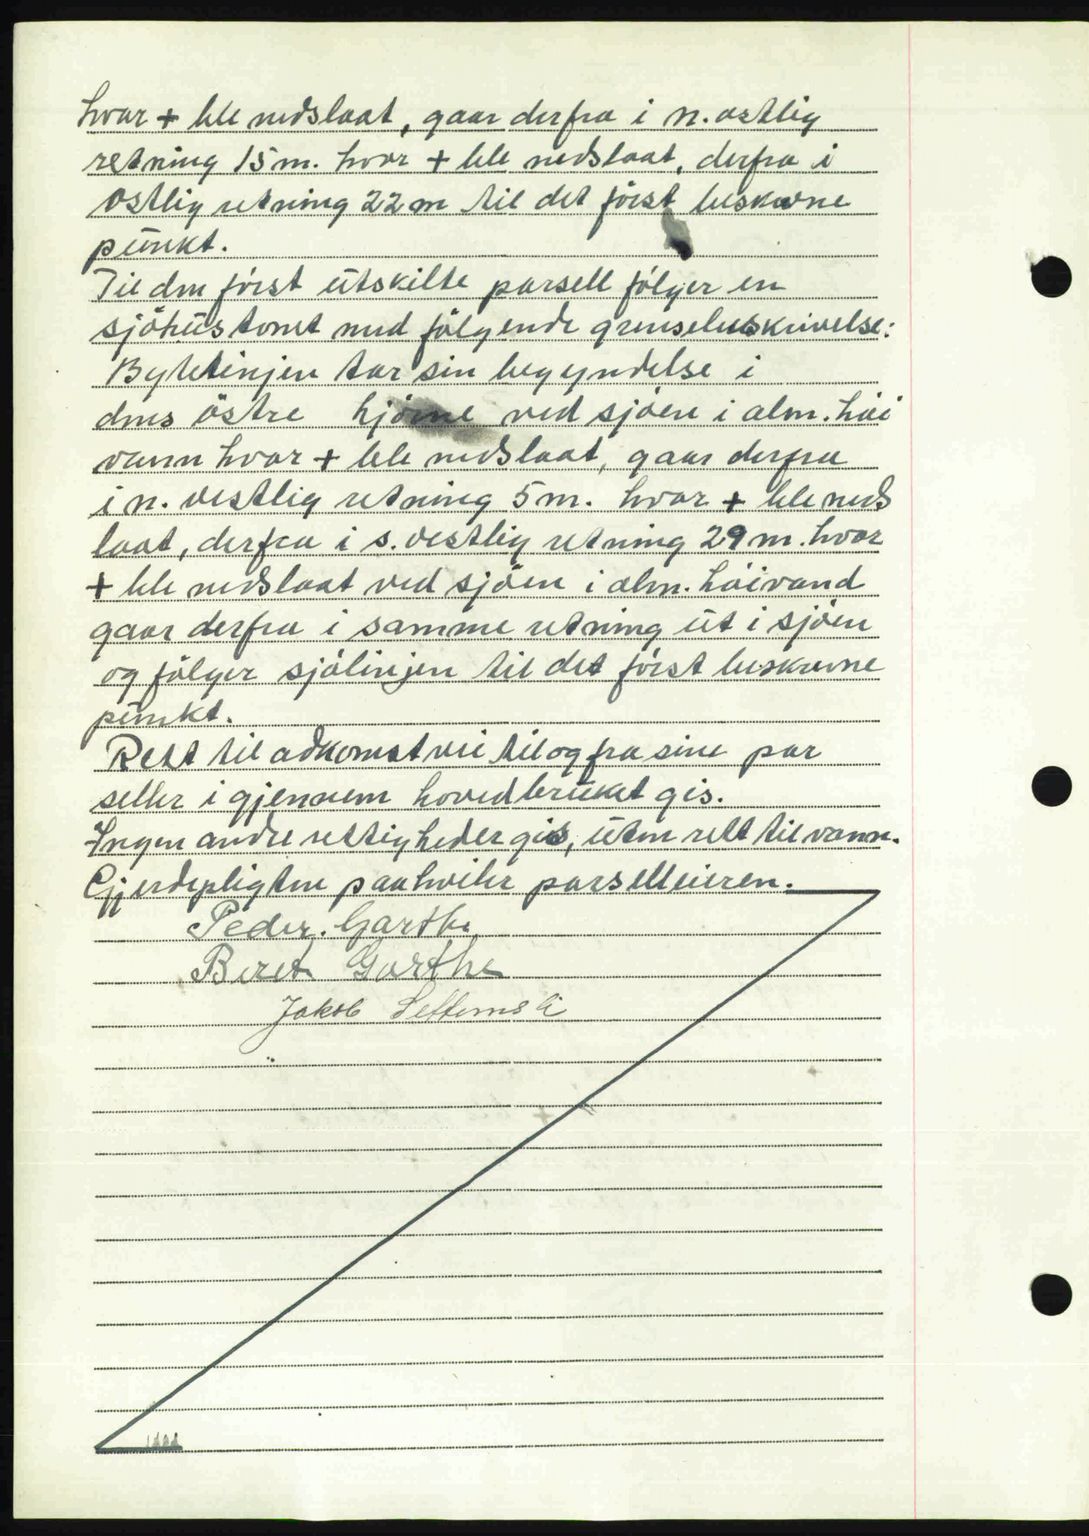 hvor + ble nedslaat, gaar derfra i n. østlig
retning 15 m. hvor + ble nedslaat, derfra i
østlig retning 22 m til det først beskrevne
punkt.
Til den først utskilte parsell følger en
sjøhustomt med følgende grensebeskrivelse:
Bytelinjen tar sin begyndelse i
dens østre hjørne ved sjøen i alm. høi
vann hvor + ble nedslaat, gaar derfra
i n. vestlig retning 5 m. hvor + ble neds
laat, derfra i s. vestlig retning 29 m. hvor
+ ble nedslaat ved sjøen i alm. høivand
gaar derfra i samme retning ut i sjøen
og følger sjølinjen til det først beskrevne
punkt.
Rett til adkomstvei til og fra sine par
seller i gjennem hovedbruket gis.
Ingen andre rettigheder gis, uten rett til vann.
Gjerdepligten paahviler parselleieren.
Peder. Garthe
Beret Garthe
Jakob